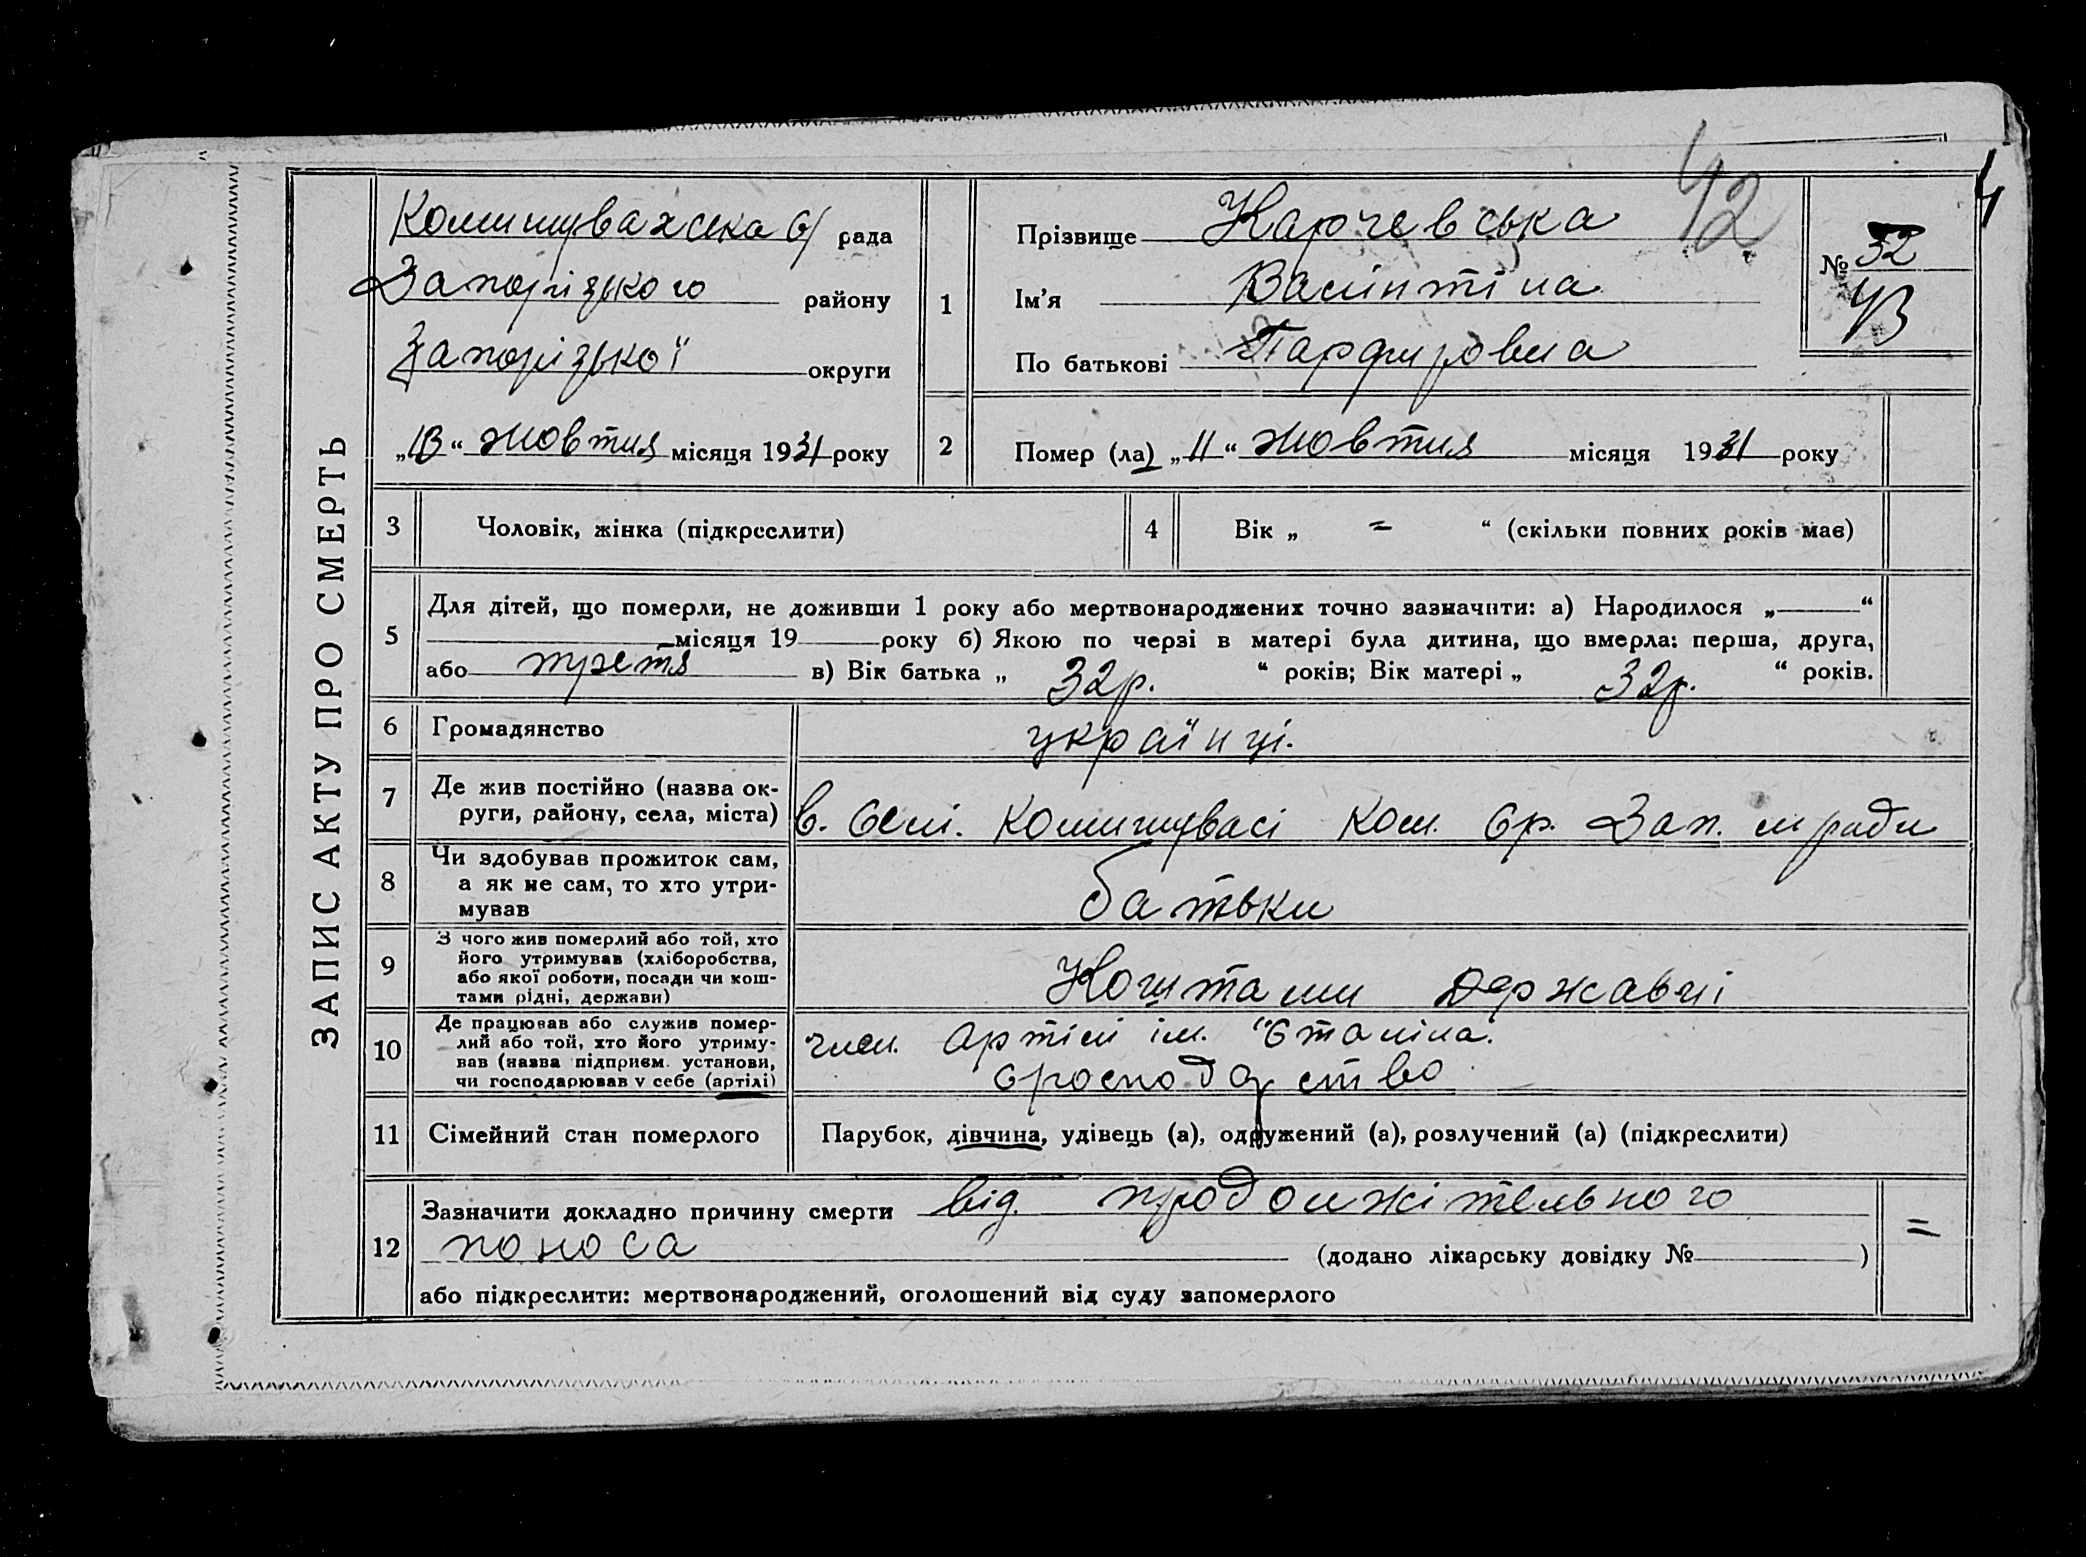 ЗАПИС АКТУ ПРО СМЕРТЬ
Комишувахська с/ рада
Запорізького району
Запорізької округи
„13“ жовтня місяця 1931 року
1
Прізвище Карчевська
Ім’я Валінтіна
По батькові Парфировна
42
№ 32
43
4
2
Помер (ла) „11“ жовтня місяця 1931 року
3 Чоловік, жінка (підкреслити)
4 Вік „ = “ (скільки повних років має)
5
Для дітей, що померли, не доживши 1 року або мертвонароджених точно зазначити: а) Народилося „ “
місяця 19 року б) Якою по черзі в матері була дитина, що вмерла: перша, друга,
або третя в) Вік батька „ 32р. “ років; Вік матері „ 32р. “ років.
6 Громадянство українці.
7 Де жив постійно (назва ок-
руги, району, села, міста)
в. селі. Комишувасі Ком. ср. Зап. м ради
8 Чи здобував прожиток сам,
а як не сам, то хто утри-
мував
батьки
9 З чого жив померлий або той, хто
його утримував (хліборобства,
або якої роботи, посади чи кош-
тами рідні, держави)
Коштами державні
10 Де працював або служив помер-
лий або той, хто його утриму-
вав (назва підприєм. установи,
чи господарював у себе (артілі)
член. Артілі ім. "Сталіна.
господарство
11 Сімейний стан померлого
Парубок, дівчина, удівець (а), одружений (а), розлучений (а) (підкреслити)
12
Зазначити докладно причину смерти від. продолжітельного
поноса (додано лікарську довідку № )
або підкреслити: мертвонароджений, оголошений від суду запомерлого
=